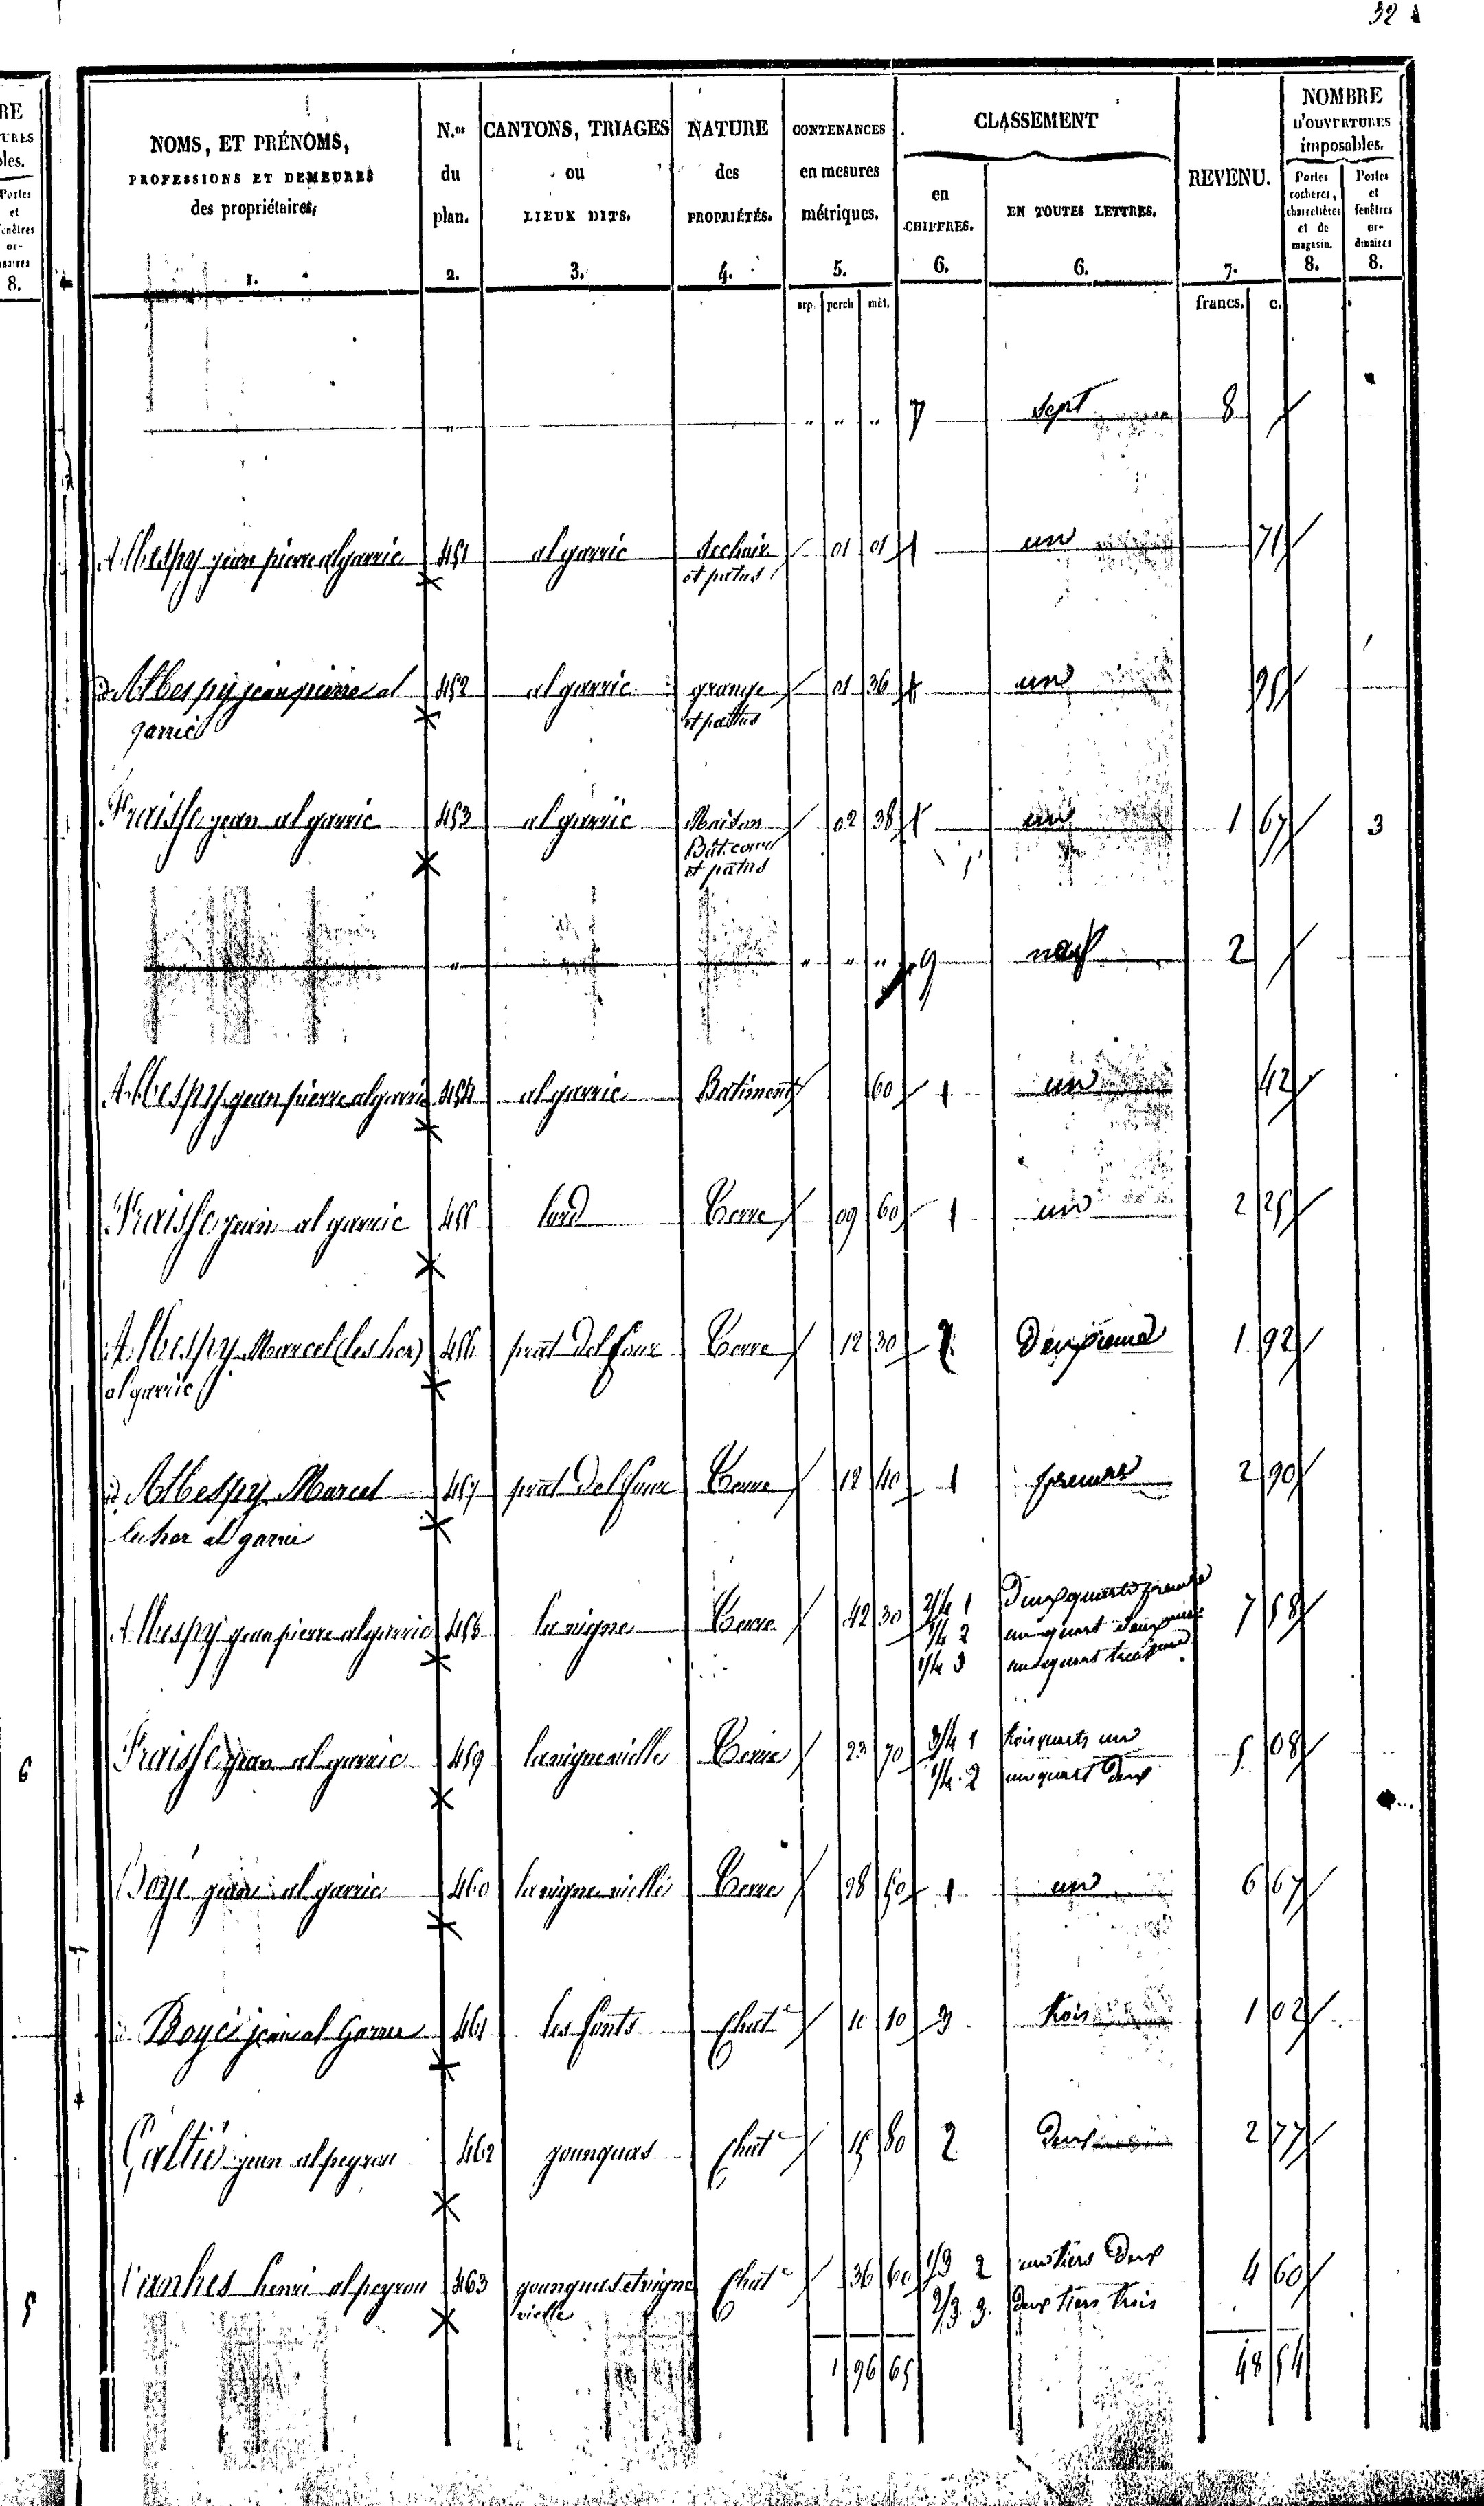 32
RE
TURES
bles.
Portes
et
fenêtres
or-
dinaires
8.
6
5
NOMS, ET PRÉNOMS,
PROFESSIONS ET DEMEURES
des propriétaires,
1.
N.os
du
plan.
2.
CANTONS, TRIAGES
ou
LIEUX DITS.
3.
NATURE
des
PROPRIÉTÉS.
4.
CONTENANCES
en mesures
métriques.
5.
CLASSEMENT
en
CHIFFRES.
6.
EN TOUTES LETTRES.
6.
REVENU.
7.
NOMBRE
D'OUVERTURES
imposables.
Portes
cochères,
charretières
et de
magasin.
8.
Portes
et
fenêtres
or-
dinaires
8.
arp. perch mèt. francs. c.
" " " " 7 sept 8
Albespy jean pierre al garric 451 al garric sechoir 01 01 1 un 71
et patus
id Albespy jean pierre al 452 al garric grange 01 36 1 un 95
garric et patus
Fraisse jean al garric 453 al garric Maison 02 38 1 un 1 67 3
Bât. cour
et patus
" " " " 9 neuf 2
Albespy jean pierre al garric 454 al garric Batiment 60 1 un 42
Fraisse jean al garric 455 09 60 1 un 2 25
Albespy Marcel (les her) 456 prat del four Terre 12 30 2 Deuxieme 1 92
al garric
id. Albespy Marcel 457 prat del four Terre 12 40 1 premier 2 90
les her al garric
Albespy jean pierre al garric 458 la vigne Terre 42 30 2/4 1 Deux quarts premier 7 58
1/4 2 un quart deuxieme
1/4 3 un quart troisieme
Fraisse jean al garric 459 la vigne vielle Terre 23 70 3/4 1 trois quarts un 5 08
1/4 2 un quart deux
Boyé jean al garric 460 la vigne vielle Terre 28 50 1 un 6 67
id Boyé jean al Garric 461 les fonts Chat 10 10 3 trois 1 02
Galtié jean al peyrou 462 gounquas Chat 15 80 2 Deux 2 77
henri al peyrou 463 gounquas et vigne Chat 36 60 1/3 2 un tiers Deux 4 60
vielle 2/3 3. Deux tiers trois
1 96 65 48 54